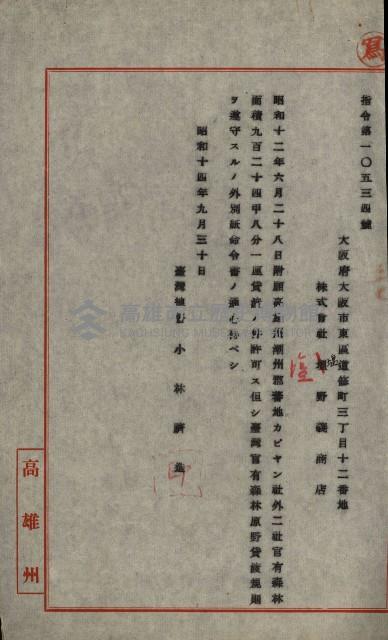 寫
指令第一〇五三四號
大阪府大阪市東區道修町三丁目十二番地
株式會社 塩野義商店
昭和十二年六月二十八日附願高雄州潮州郡蕃地カピヤン社外二社官有森林
面積九百二十四甲八分一厘貸許ノ件許可ス但シ臺灣官有森林原野貸渡規則
ヲ遵守スルノ外別紙命令書ノ通心得ベシ
昭和十四年九月三十日
臺灣總 小林躋造
印
高雄州
高雄市立歷史博物館
KAOHSIUNG MUSEUM